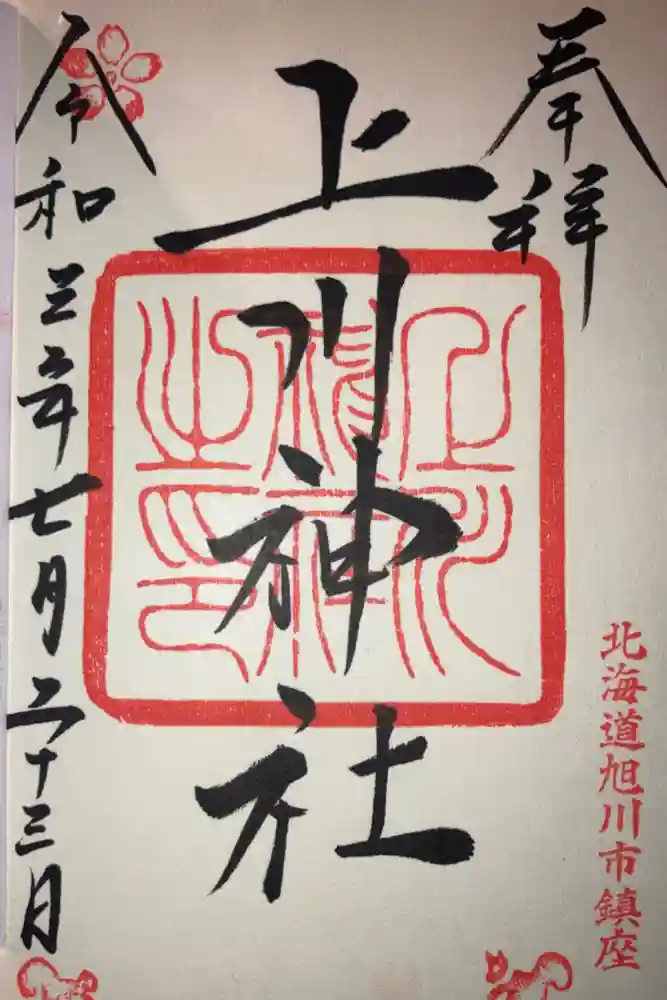 奉拝
北海道旭川市鎮座
上川神社
上川
神社
之印
令和三年七月二十三日